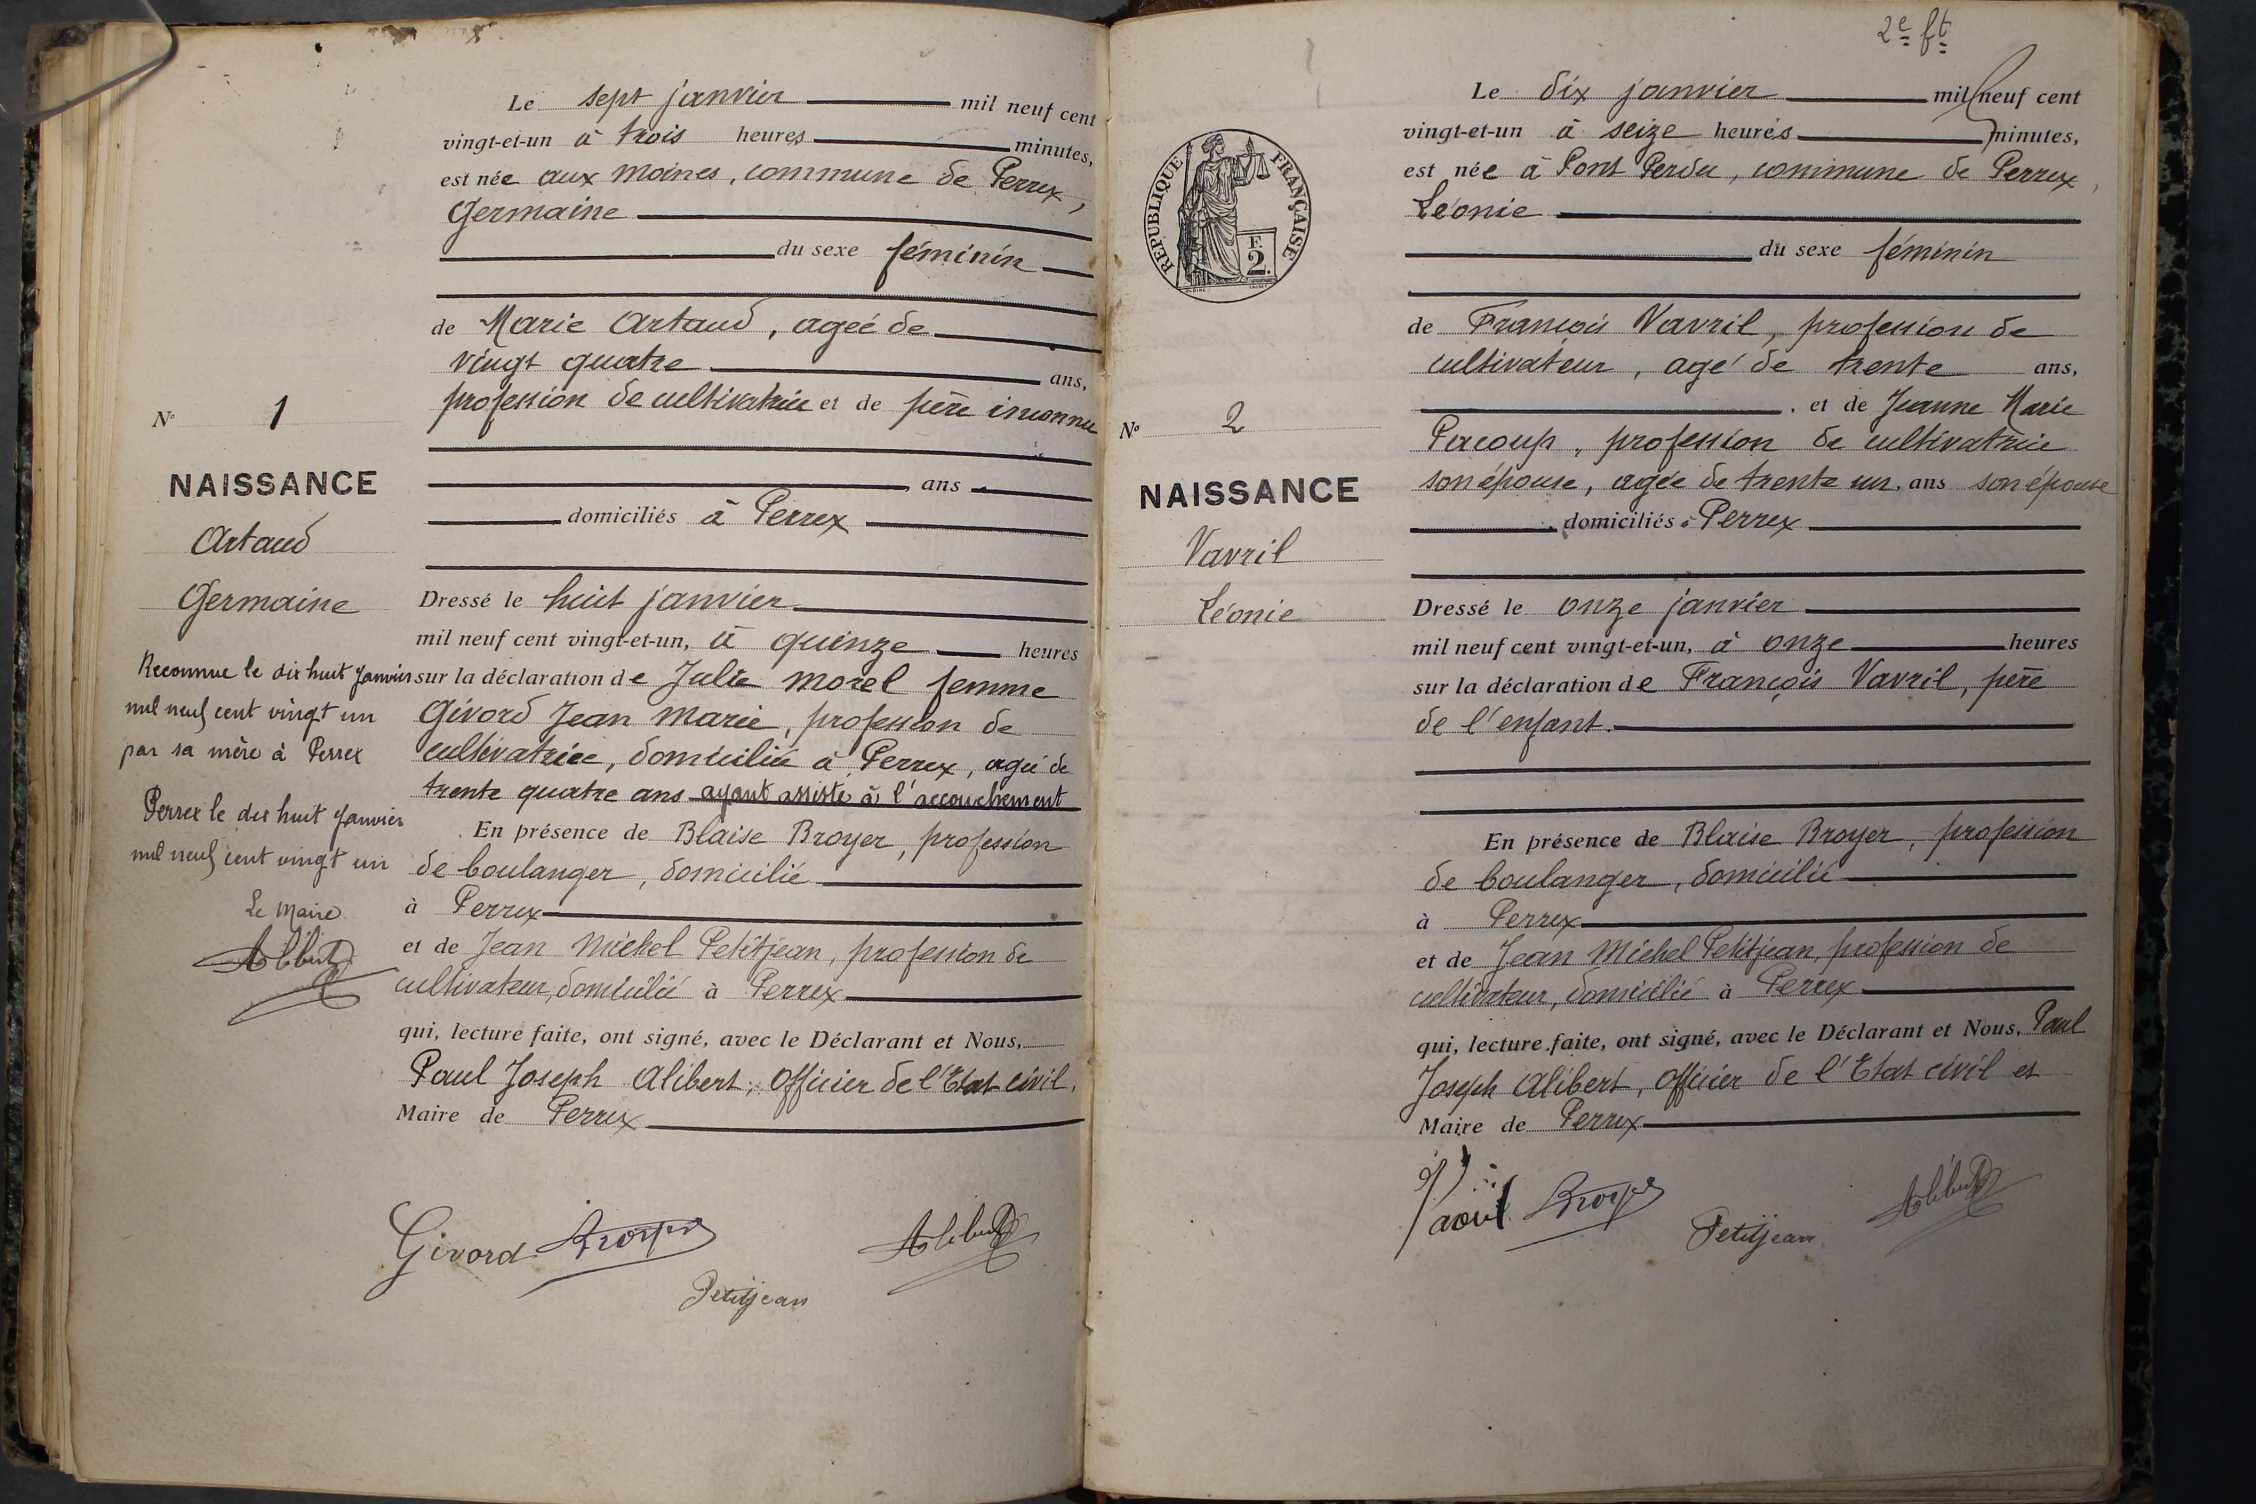 Le sept janvier mil neuf cent
vingt-et-un à trois heures minutes,
est née aux Moines, commune de Perrex,
Germaine
du sexe féminin
de Marie Artaud, ageé de
vingt quatre ans,
profession de cultivatrice et de père inconnu
ans
domiciliés à Perrex
Dressé le huit janvier
mil neuf cent vingt-et-un, à quinze heures
sur la déclaration de Julie Morel femme
Givord Jean Marie, profession de
cultivatrice, domiciliée à Perrex, agée de
trente quatre ans ayant assisté à l'accouchement
En présence de Blaise Broyer, profession
de boulanger, domicilié
à Perrex
et de Jean Michel Petitjean, profession de
cultivateur, domicilié à Perrex
qui, lecture faite, ont signé, avec le Déclarant et Nous,
Paul Joseph Alibert, Officier de l'Etat civil,
Maire de Perrex
Givord Broyer Alibert
Petitjean
N° 1
NAISSANCE
Artaud
Germaine
Reconnue le dix huit Janvier
mil neuf cent vingt un
par sa mère à Perrex
Perrex le dix huit Janvier
mil neuf cent vingt un
Le Maire
Alibert
2e ft
Le dix janvier mil neuf cent
vingt-et-un à seize heures minutes,
est née à Pont Perdu, commune de Perrex,
Léonie
du sexe féminin
de François Vavril, profession de
cultivateur, agé de trente ans,
et de Jeanne Marie
Pacoup, profession de cultivatrice
son épouse, agée de trente un ans son épouse
domiciliés à Perrex
Dressé le onze janvier
mil neuf cent vingt-et-un, à onze heures
sur la déclaration de François Vavril, père
de l'enfant.
En présence de Blaise Broyer, profession
de boulanger, domicilié
à Perrex
et de Jean Michel Petitjean, profession de
cultivateur, domicilié à Perrex
qui, lecture faite, ont signé, avec le Déclarant et Nous, Paul
Joseph Alibert, Officier de l'Etat civil et
Maire de Perrex
Broyer Petitjean Alibert
RÉPUBLIQUE FRANÇAISE
F.
2.
N° 2
NAISSANCE
Vavril
Léonie